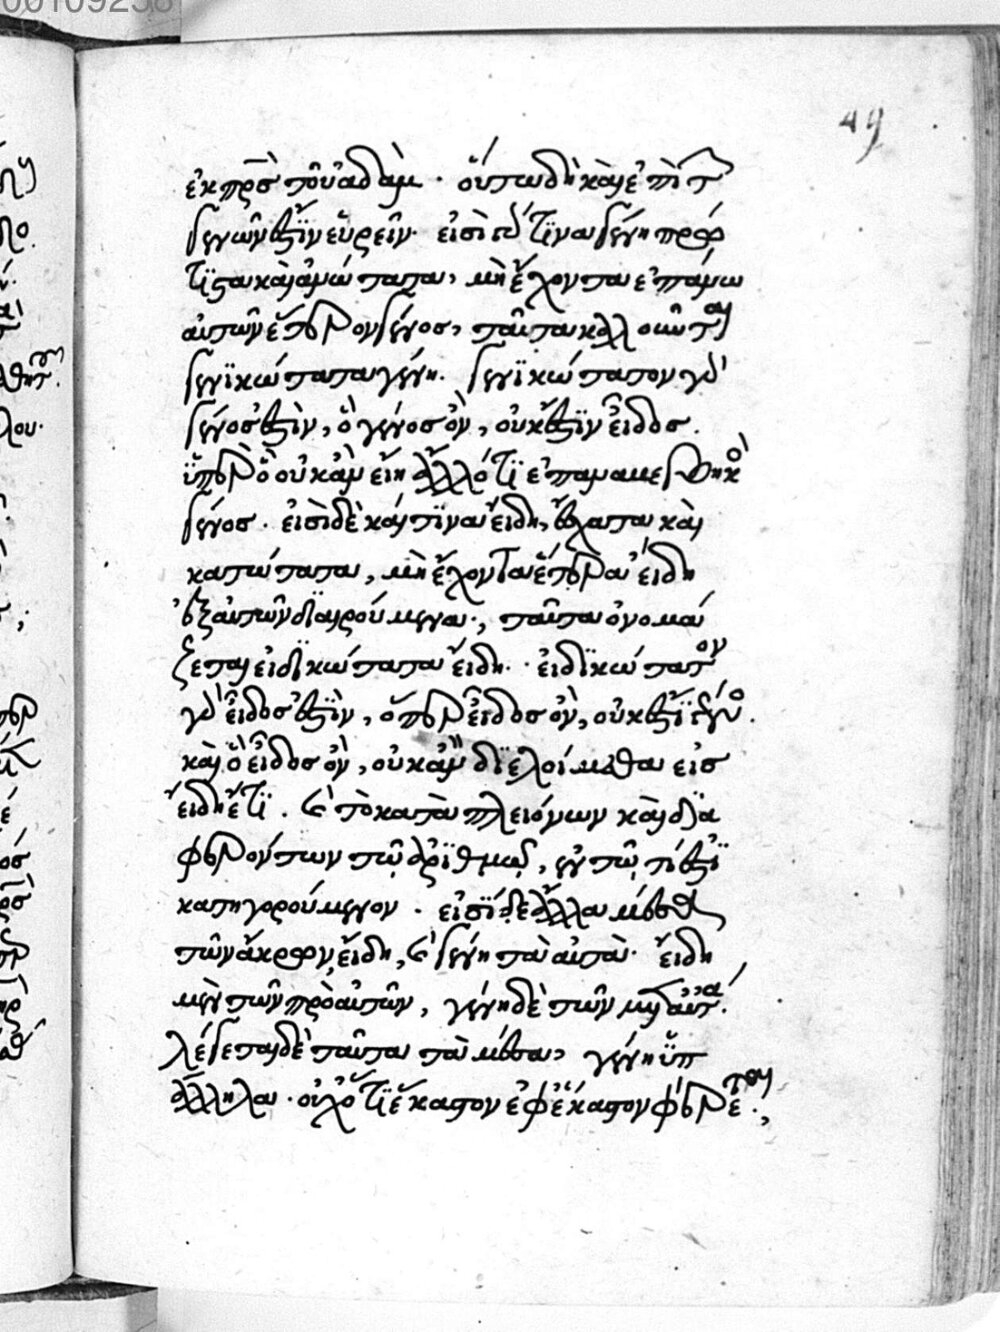 00109258
49
ἐκ πρς τοῦ ἀδάμ. οὕτω δὴ καὶ ἐπὶ τ
γενῶν ἐστὶν εὑρεῖν. εἰσὶ γάρ τινα γένη πρῶ
τιστα καὶ ἀνώτατα, μὴ ἔχοντα ἐπάνω
αὐτῶν ἕτερον γένος, ταῦτα καλλοῦντου
γενικώτατα γένη. γενικώτατον γὰρ
γένος ἐστὶν, ὃ γένος ὂν, οὐκ ἔστιν εἶδος.
ὑπὲρ ὃ οὐκ ἂν εἴη ἄλλό τι ἐπαναβεβηκὸ
γένος. εἰσὶ δὲ καί τινα εἴδη, ἔσχατα καὶ
κατώτατα, μὴ ἔχοντα ἕτερα εἴδη
ἐξ αὐτῶν διαιρούμενα, ταῦτα ὀνομά
ζεται εἰδικώτατα εἴδη. εἰδικώτατον
γὰρ εἶδος ἐστὶν, ὅπερ εἶδος ὂν, οὐκ ἔστι γένο.
καὶ ὃ εἶδος ὂν, οὐκ ἂν διέλοίμεθα εἰς
εἴδη ἔτι. τὸ κατὰ πλειόνων καὶ δια
φερόντων τῷ ἀριθμῷ, ἐν τῷ τί ἐστι
κατηγορούμενον. εἰσὶ δὲ ἄλλα μέσα
τῶν ἄκρων, εἴδη, γένη τὰ αὐτά. εἴδη
μὲν τῶν πρὸ αὐτῶν, γένη δὲ τῶν μετ αὐτά.
λέγεται δὲ ταῦτα τὰ μέσα, γένη ὑπ
ἄλληλα. οὐχ ὅτι ἕκαστον ἐφ ἑκάστον φέρεται.,